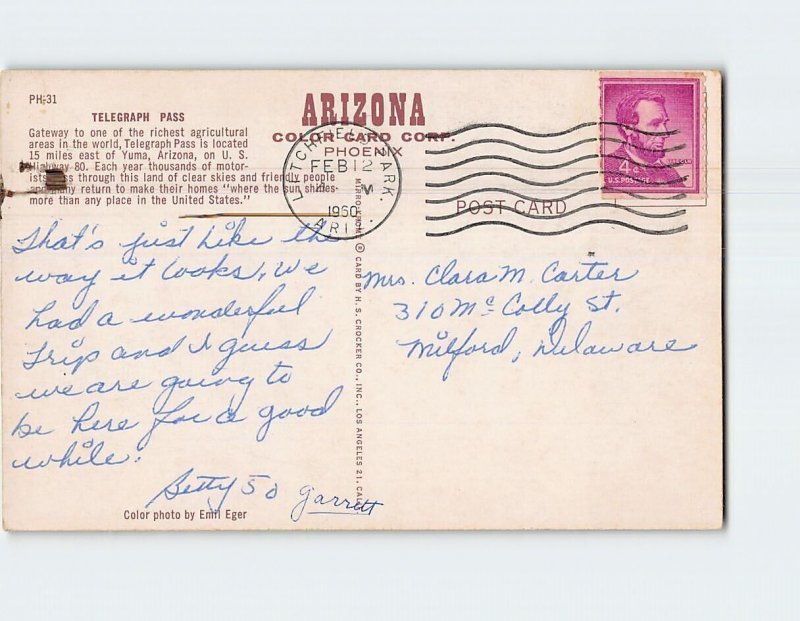 PH-31
TELEGRAPH PASS
Gateway to one of the richest agricultural
areas in the world, Telegraph Pass is located
15 miles east of Yuma, Arizona, on U. S.
Highway 80. Each year thousands of motor-
ists pass through this land of clear skies and friendly people
and many return to make their homes "where the sun shines
more than any place in the United States."
ARIZONA
COLOR CARD CORP.
PHOENIX
LITCHFIELD PARK.
FEB 12
M
1960
ARIZ.
4¢
U.S. POSTAGE
LINCOLN
POST CARD
MIRRO-KROME ® CARD BY H. S. CROCKER CO., INC., LOS ANGELES 21, CAL.
That's just like the
way it looks, we
had a wonderful
trip and I guess
we are going to
be here for a good
while.
Betty
Garrett
Mrs. Clara M. Carter
310 Mc Colly St.
Milford, Delaware
Color photo by Emil Eger